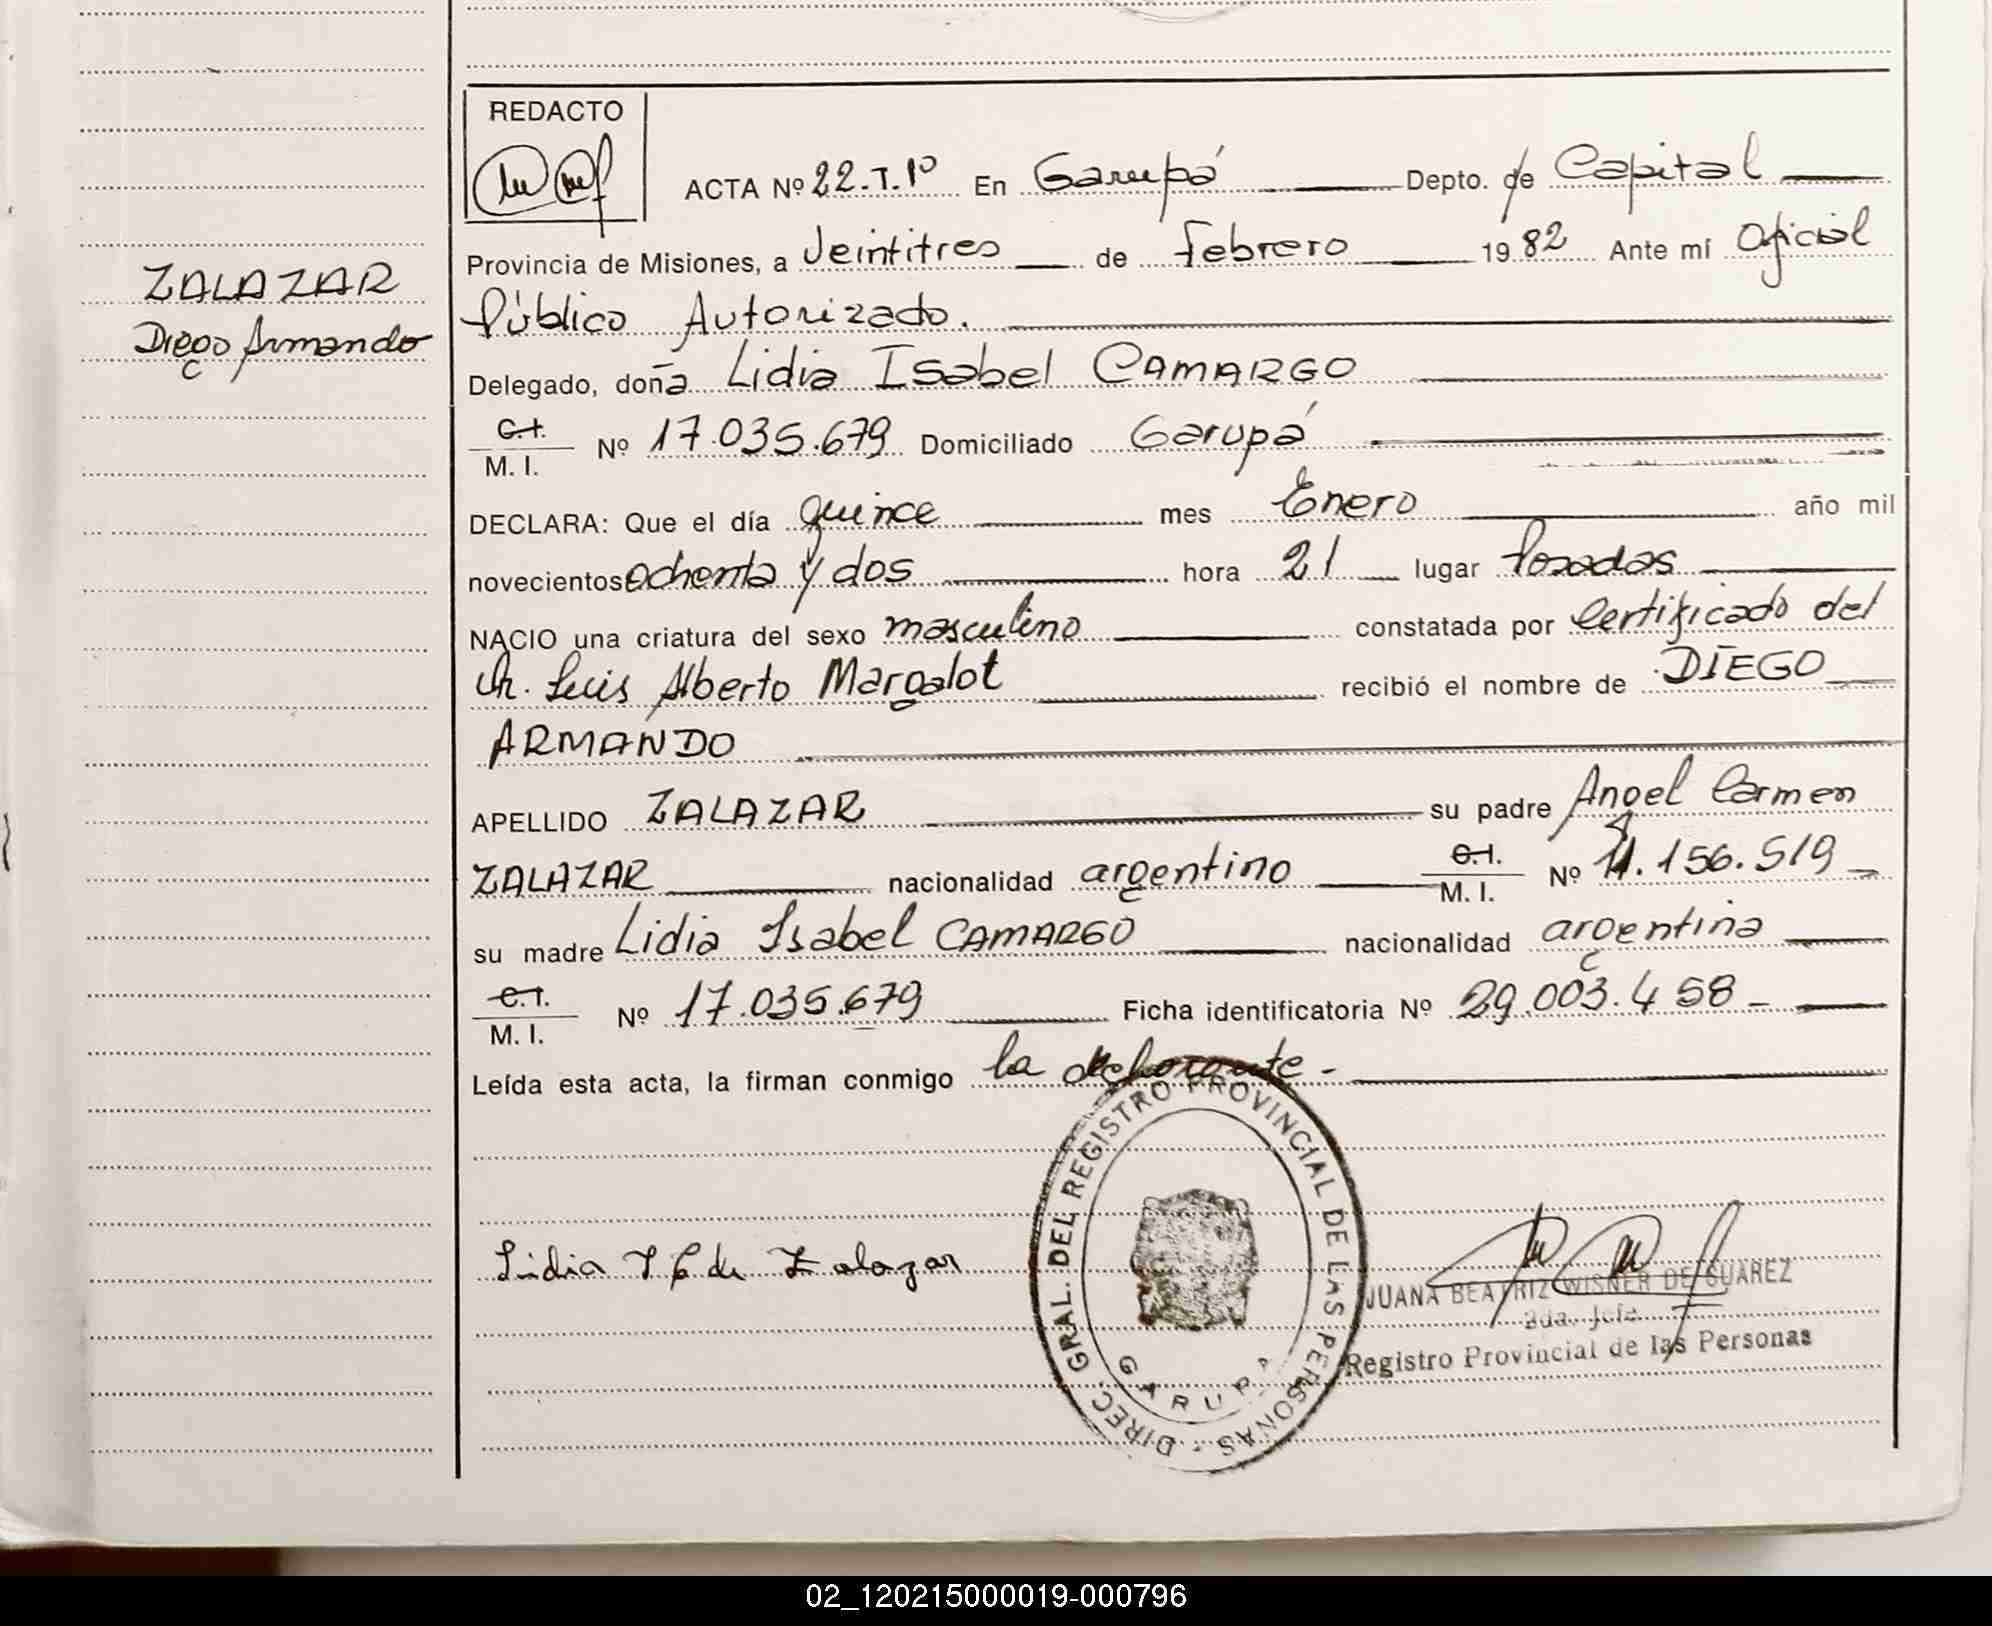 REDACTO
ACTA Nº 22.T.1º En Garupá Depto. de Capital
Provincia de Misiones, a Veintitres de Febrero 1982 Ante mí Oficial
Público Autorizado.
ZALAZAR
Diego Armando
Delegado, doña Lidia Isabel CAMARGO
C.I.
M. I. Nº 17.035.679 Domiciliado Garupá
DECLARA: Que el día quince mes Enero año mil
novecientos ochenta y dos hora 21 lugar Posadas
NACIO una criatura del sexo masculino constatada por Certificado del
Dr. Luis Alberto Margalot recibió el nombre de DIEGO
ARMANDO
APELLIDO ZALAZAR su padre Angel Carmen
ZALAZAR nacionalidad argentino C.I. M. I. Nº .156.519
su madre Lidia Isabel CAMARGO nacionalidad argentina
C.I.
M. I. Nº 17.035.679 Ficha identificatoria Nº 29.003.458
Leída esta acta, la firman conmigo la declarante.-
Lidia I C de Zalazar
DIREC. GRAL. DEL REGISTRO PROVINCIAL DE LAS PERSONAS
GARUPA
JUANA BEATRIZ WISNER DE SUAREZ
2da. Jefe
Registro Provincial de las Personas
02_120215000019-000796